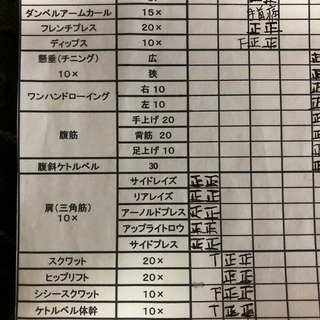 ダンベルアームカール 15×
フレンチプレス 20× 正正
ディップス 10× 下正正
懸垂(チニング) 広
10× 狭
ワンハンドローイング 右 10
左 10
腹筋 手上げ 20
背筋 20
足上げ 10
腹斜ケトルベル 30
肩(三角筋) サイドレイズ 正正
10× リアレイズ 正正
アーノルドプレス 正正
アップライトロウ 正正
サイドプレス 正正
スクワット 20× T正正
ヒップリフト 20× 正正
シシースクワット 10× 下正正
ケトルベル体幹 10× T正正